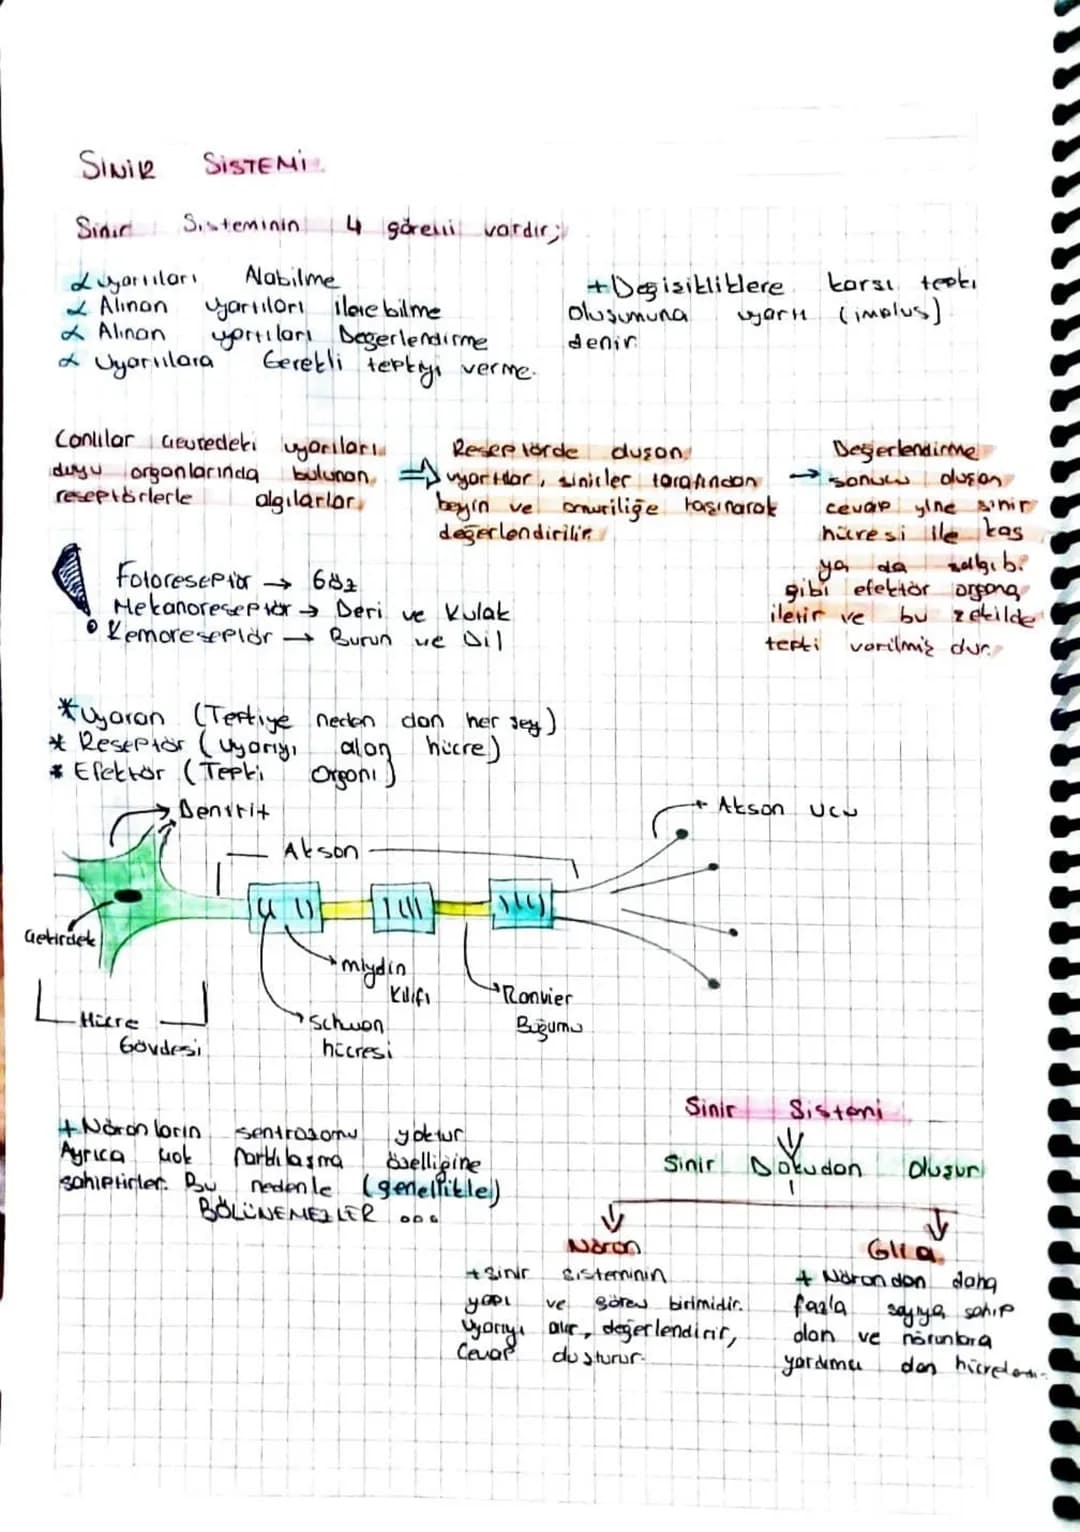 SiNiR SiSTEMi
Sinir Sisteminin 4 görevi vardır;
Uyarıları Alabilme
Alınan uyarıları iletebilme
Alınan uyartıları Değerlendirme
Uyarılara Gerekli tepkiyi verme.
+Değisikliklere karsı tepki
olusumuna uyartı (impluş)
denir.
Canlılar Çevredeki uyarıları
duyu organlarında bulunan
reseptörlerle algılarlar
⇒ Reseptörde oluşan
uyartılar, sinirler tarafından
beyin ve omuriliğe taşınarak
değerlendirilir.
→ Değerlendirme
sonucu oluşan
cevap yine sinir
hücresi ile kas
ya da salgı bi
gibi efektör organa
iletir ve bu şekilde
tepki verilmiş olur.
Fotoreseptör → Göz
Mekanoreseptör → Deri ve Kulak
Kemoreseptör → Burun ve Dil
*Uyaran (Tepkiye neden olan her şey)
* Reseptör (uyarıyı alan hücre)
* Efektör (Tepki Organı)
Dentrit
Akson ucu
Akson
Çekirdek
miydin
Kılıfı
Ronvier
Boğumu
Hücre
Gövdesi
Schwan
hücresi
+Nöronların sentrozomu yoktur
Ayrıca çok farklılaşma özelliğine
sahiptirler. Bu nedenle (genellikle)
BÖLÜNEMEZLER ...
Sinir Sistemi
Sinir Dokudan Oluşur
Nöron
+ sinir sisteminin
yapı ve görev birimidir.
uyarıyı alır, değerlendirir,
Cevap oluşturur.
Glia
+ Nörondan daha
fazla sayıya sahip
olan ve nöronlara
yardımcı olan hücreler